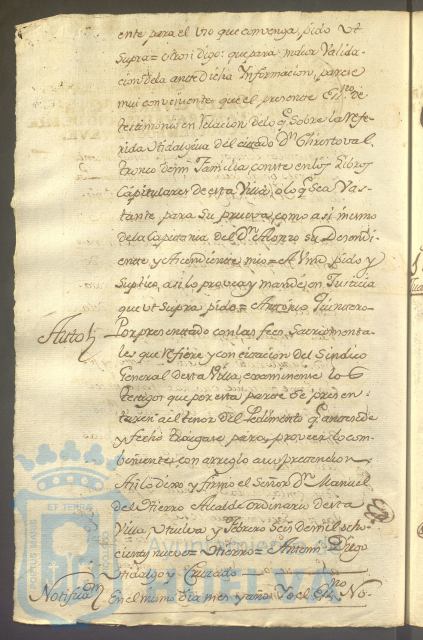 ente para el uso que convenga, pido Ut
Supra = otrosi digo: que para maior Valida-
cion de la antedicha Informacion, parese
mui conveniente que el presente Es.no de
testimonio en relacion de lo q.e Sobre la refe-
rida Hidalguia del citado D.n Christoval,
tronco de mi Familia conste en los Libros
Capitulares de esta Villa, o lo q.e sea Vas-
tante para su prueva, como asi mismo
de la Capitania del D.n Alonzo su Desendi-
ente, y Asendiente mio = A Vmd pido y
Suplico, asi lo provea y mande, en Justicia
que ut Supra pido = Antonio Quintero =
Auto} Por presentado con las fees Sacramenta-
les que refiere, y con citacion del Sindico
General de esta Villa, examinense los
testigos que por esta parte se presen-
taren al tenor del Pedimento q.e antesede
y fecho traigase para proveer lo com-
beniente con arreglo a su pretencion.
Asi lo dixo y firmó el Señor D.n Manuel
del Hierro Alcalde Ordinario de esta
Villa Huelva y Febrero Seis de mil ocho-
cientos nueve = Hierro = Antonio Diego
Hidalgo y Cruzado
Notificaz.on} En el mismo dia mes y año Yo el Es.no No-
PORTUS MARIS ET TERRAE
Ayuntamiento de
HUELVA